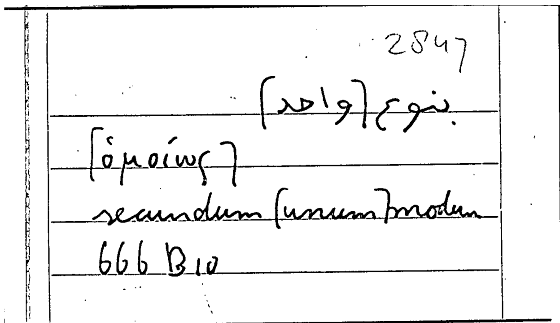 2847
بنوع [واحد]
[ὁμοίως]
secundum [unum] modum
666 B 10